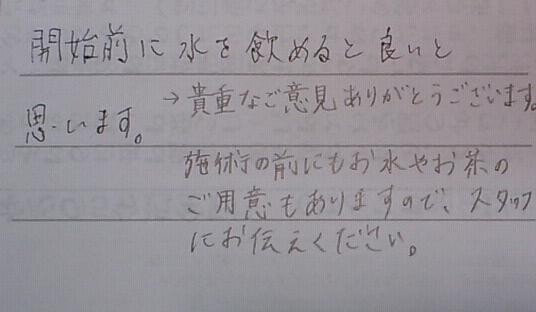 開始前に水を飲めると良いと
思います。
→貴重なご意見ありがとうございます。
施術の前にもお水やお茶の
ご用意もありますので、スタッフ
にお伝えください。